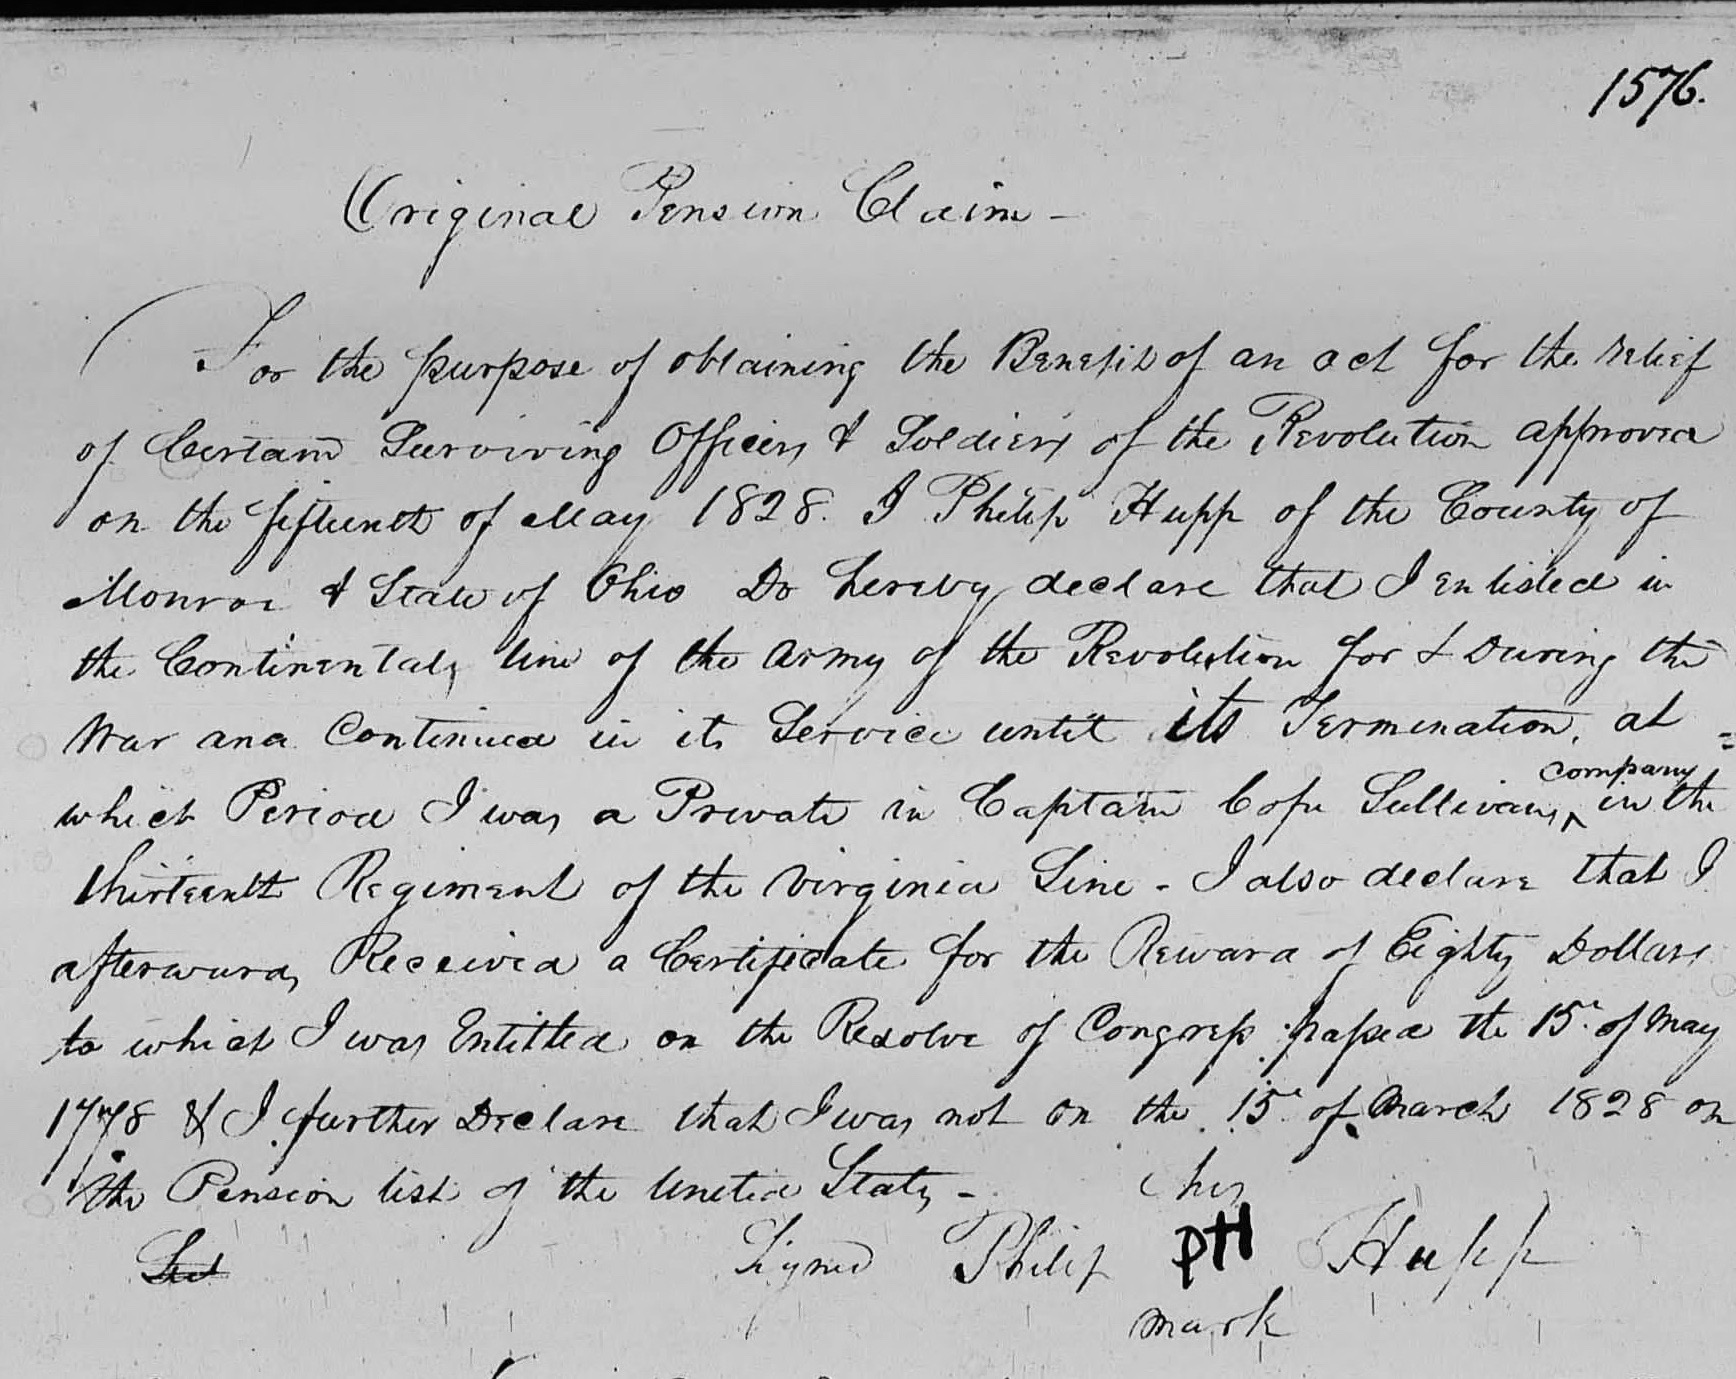 1576.
Original Pension Claim -
For the purpose of obtaining the Benefit of an act for the relief
of Certain Surviving Officers & Soldiers of the Revolution approved
on the fifteenth of May 1828. I Philip Hupp of the County of
Monroe & State of Ohio Do hereby declare that I enlisted in
the Continental, line of the army of the Revolution for & During the
War and Continued in its Service until its Termination, at
which Period I was a Private in Captain Sullivans, ^ company in the
thirteenth Regiment of the Virginia Line - I also declare that I
afterwards Received a Certificate for the Reward of Eighty Dollars
to which I was Entitled on the Resolve of Congress passed the 15 of May
1778 & I further Declare that I was not on the 15 of March 1828 on
the Pension list of the United States -
his
Signed Philip PH Hupp
mark